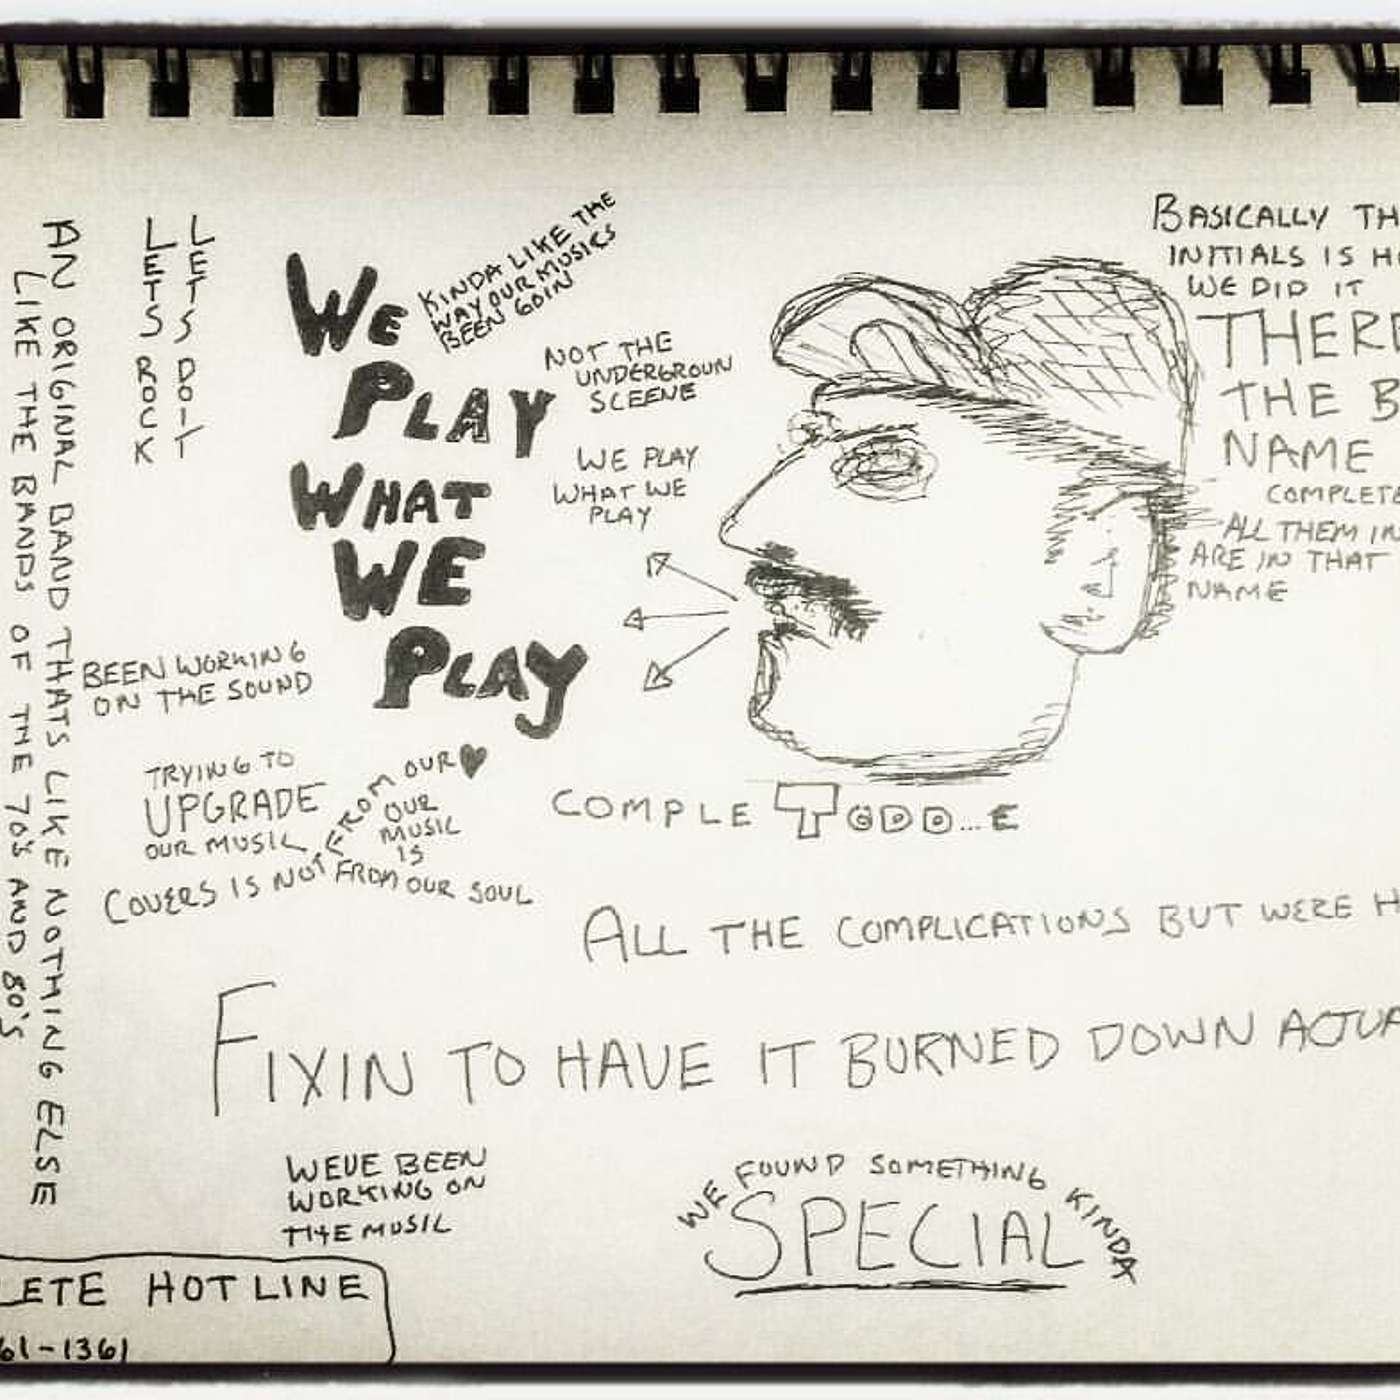 AN ORIGINAL BAND THATS LIKE NOTHING ELSE
LIKE THE BANDS OF THE 70'S AND 80'S
LETS DO IT
LETS ROCK
WE
PLAY
WHAT
WE
PLAY
KINDA LIKE THE
WAY OUR MUSICS
BEEN GOIN
NOT THE
UNDERGROUN
SCEENE
WE PLAY
WHAT WE
PLAY
BASICALLY TH
INITIALS IS H
WE DID IT
THER
THE B
NAME
COMPLETE
ALL THEM IN
ARE IN THAT
NAME
BEEN WORKING
ON THE SOUND
TRYING TO
UPGRADE
OUR MUSIC
COVERS IS NOT FROM OUR ♥
OUR
MUSIC
IS
FROM OUR SOUL
COMPLE TODD...E
ALL THE COMPLICATIONS BUT WERE H
FIXIN TO HAVE IT BURNED DOWN ACTUA
WEVE BEEN
WORKING ON
THE MUSIC
WE FOUND SOMETHING KINDA
SPECIAL
LETE HOTLINE
61-1361